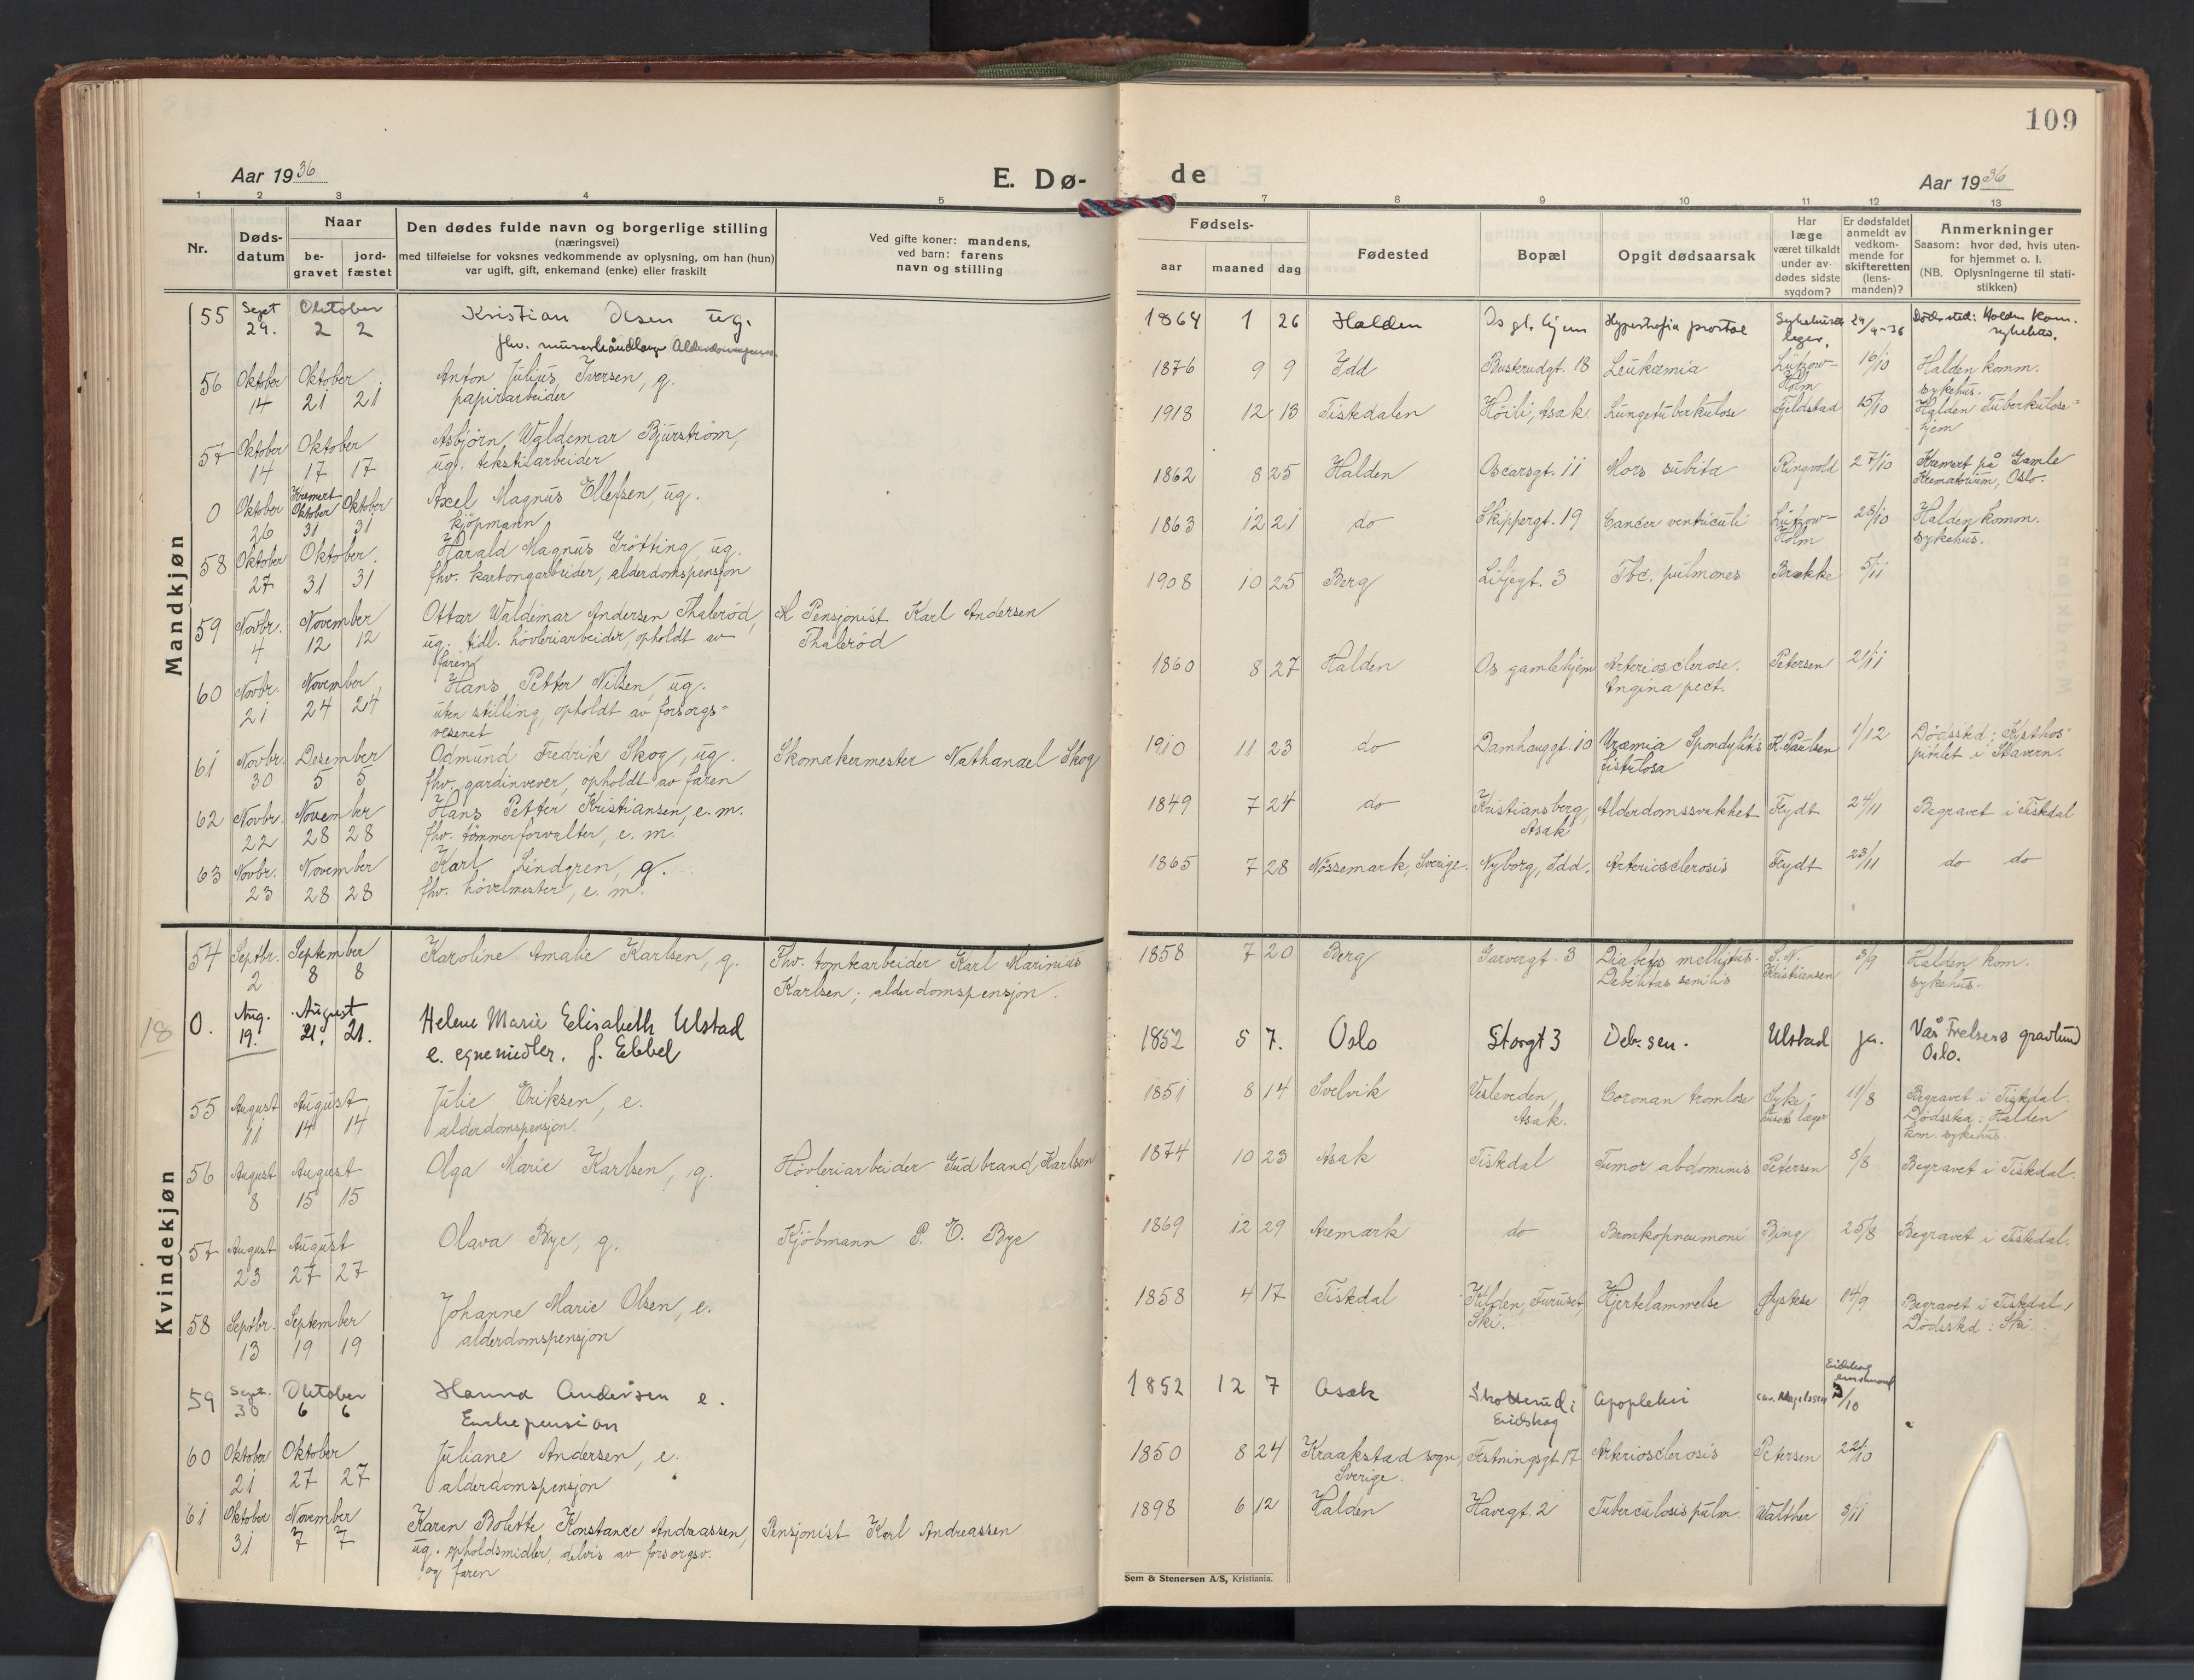 109
Aar 1936
E. Dø-
de
Aar 1936
1 2 3 4 5
6 7 8 9 10 11 12 13
Nr.
Døds-
datum
Naar
be-
gravet
jord-
fæstet
Den dødes fulde navn og borgerlige stilling
(næringsvei)
med tilføielse for voksnes vedkommende av oplysning, om han (hun)
var ugift, gift, enkemand (enke) eller fraskilt
Ved gifte koner: mandens,
ved barn: farens
navn og stilling
Fødsels-
aar maaned dag
Fødested
Bopæl
Opgit dødsaarsak
Har
læge
været tilkaldt
under av-
dødes sidste
sygdom?
Er dødsfaldet
anmeldt av
vedkom-
mende for
skifteretten
(lens-
manden)?
Anmerkninger
Saasom: hvor død, hvis uten-
for hjemmet o. l.
(NB. Oplysningerne til stati-
stikken)
Mandkjøn
55 Sept Oktober Kristian Olsen ug. 1864 1 26 Halden Os gl. hjem 29/9-36 Dødssted: Halden kom.
29. 2 2 fhv. sykehus.
56 Oktober Oktober Anton Julius Iversen, g. 1876 9 9 Idd Buskerudgt. 18 Leukæmia Lützow- 16/10 Halden komm.
14 21 21 papirarbeider Holm sykehus.
57 Oktober Oktober Asbjørn Waldemar Bjurström, 1918 12 13 Tistedalen Høili, Asak Lungetuberkulose Fjeldstad 15/10 Halden Tuberkulose-
14 17 17 ug. tekstilarbeider hjem
0 Oktober Kremert Oktober Oktober Axel Magnus Ellefsen, ug. 1862 8 25 Halden Oscarsgt. 11 Mors subita Ringvold 27/10 Kremert på Gamle
26 31 31 kjøpmann Krematorium, Oslo.
58 Oktober Oktober Harald Magnus Grötting, ug. 1863 12 21 do Skippergt. 19 Cancer ventriculi Lützow- 28/10 Halden komm.
27 31 31 fhv. kartongarbeider, alderdomspensjon Holm sykehus.
59 Novbr. November Ottar Waldemar Andersen Thalerød, Pensjonist Karl Andersen 1908 10 25 Berg Liljegt. 3 Tbc. pulmones Brække 5/11
4 12 12 ug. tidl. høvleriarbeider, opholdt av Thalerød
faren
60 Novbr. November Hans Petter Nilsen, ug. 1860 8 27 Halden Os gamlehjem Arteriosclerose. Petersen 21/11
21 24 24 uten stilling, opholdt av forsorgs- Angina pect.
vesenet
61 Novbr. Desember Odmund Fredrik Skog, ug. Skomakermester Nathanael Skog 1910 11 23 do Damhauggt. 10 Uræmia Spondylitis K. Paulsen 1/12 Dødssted: Kysthos-
30 5 5 fhv. gardinvever, opholdt av faren fistulosa pitalet i Stavern.
62 Novbr. November Hans Petter Kristiansen, e. m. 1849 7 24 do Kristiansberg, Alderdomssvakhet Feydt 24/11 Begravet i Tistedal
22 28 28 fhv. tømmerforvalter, e. m. Asak
63 Novbr. November Karl Lindgren, g. 1865 7 28 Nössemark, Sverige. Nyborg, Idd. Arteriosclerosis Feydt 23/11 do do
23 28 28 fhv. høvelmester, e. m.
Kvindekjøn
54 Septbr. September Karoline Amalie Karlsen, g. Fhv. tomtearbeider Karl Marinius 1858 7 20 Berg Garvergt. 3 Diabetes mellitus. S. N. 3/9 Halden kom.
2 8 8 Karlsen; alderdomspensjon. Debilitas senilis Kristiansen sykehus.
18 0. Aug. August Helene Marie Elisabeth Ulstad 1852 5 7. Oslo Storgt 3 Deb. sen. Ulstad ja. Vår Frelsers gravlund
19. 21. 21. e. egne midler. f. Ebbel Oslo.
55 August August Julie Eriksen, e. 1851 8 14 Svelvik Vesleveden, Coronan tromlose Syke- 11/8 Begravet i Tistedal.
11 14 14 alderdomspensjon. Asak. husets læger Dødssted: Halden
kom. sykehus
56 August August Olga Marie Karlsen, g. Høvleriarbeider Gudbrand Karlsen 1874 10 23 Asak Tistedal Tumor abdominis Petersen 8/8 Begravet i Tistedal.
8 15 15
57 August August Olava Bye, g. Kjøbmann P. O. Bye 1869 12 29 Aremark do Bronkopneumoni Bing 25/8 Begravet i Tistedal.
23 27 27
58 Septbr. September Johanne Marie Olsen, e. 1858 4 17 Tistedal Kilden, Furuset, Hjertelammelse 14/9 Begravet i Tistedal,
13 19 19 alderdomspensjon Ski. Dødssted: Ski.
59 Sept. Oktober Hanna Andersen e. 1852 12 7 Asak Skotterud i Apopleksi 3/10
30 6 6 Enkepension Eidskog
60 Oktober Oktober Juliane Andersen, e. 1850 8 24 Kraakstad sogn, Festningsgt. 17 Arteriosclerosis Petersen 22/10
21 27 27 alderdomspensjon Sverige.
61 Oktober November Karen Bolette Konstance Andreassen, Pensjonist Karl Andreassen 1898 6 12 Halden Havegt. 2 Tuberculosis pulm. Walther 3/11
31 7 7 ug. opholdsmidler, delvis av forsorgsv.
og faren
Sem & Stenersen A/S, Kristiania.